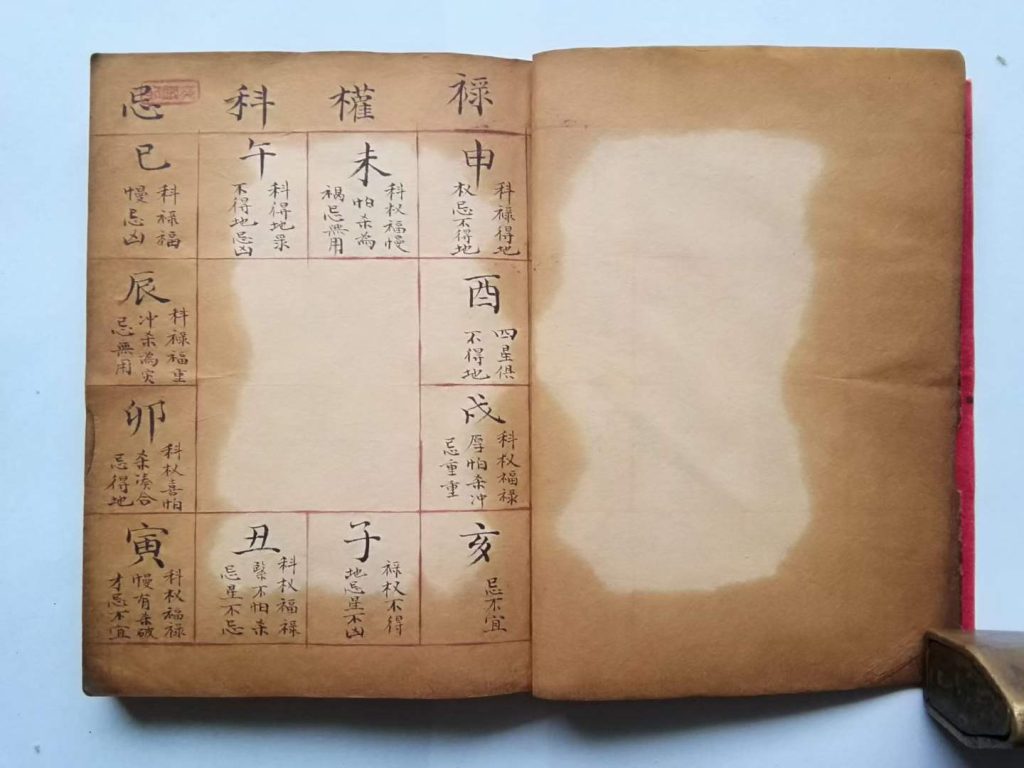 禄
權
科
忌
申
科禄得地
权忌不得地
未
科权福慢
怕杀為
禍忌無用
午
科得地
不得地忌凶
巳
科禄福
慢忌凶
酉
四星俱
不得地
辰
科禄福
冲杀為
忌無用
戌
科权福禄
厚怕杀冲
忌重重
卯
科权喜怕
杀凑合
忌得地
亥
忌不宜
子
禄权不得
地忌星不凶
丑
科权福禄
緊不怕杀
忌星不忌
寅
科权福禄
慢有杀破
才忌不宜